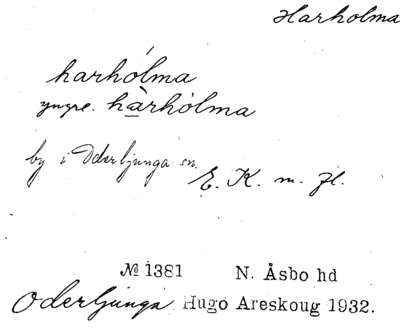 Harholma
harhólma
yngre. hàrhólma
by i Oderljunga sn.
E. K. m. fl.
№ 1381 N. Åsbo hd
Oderljunga Hugo Areskoug 1932.